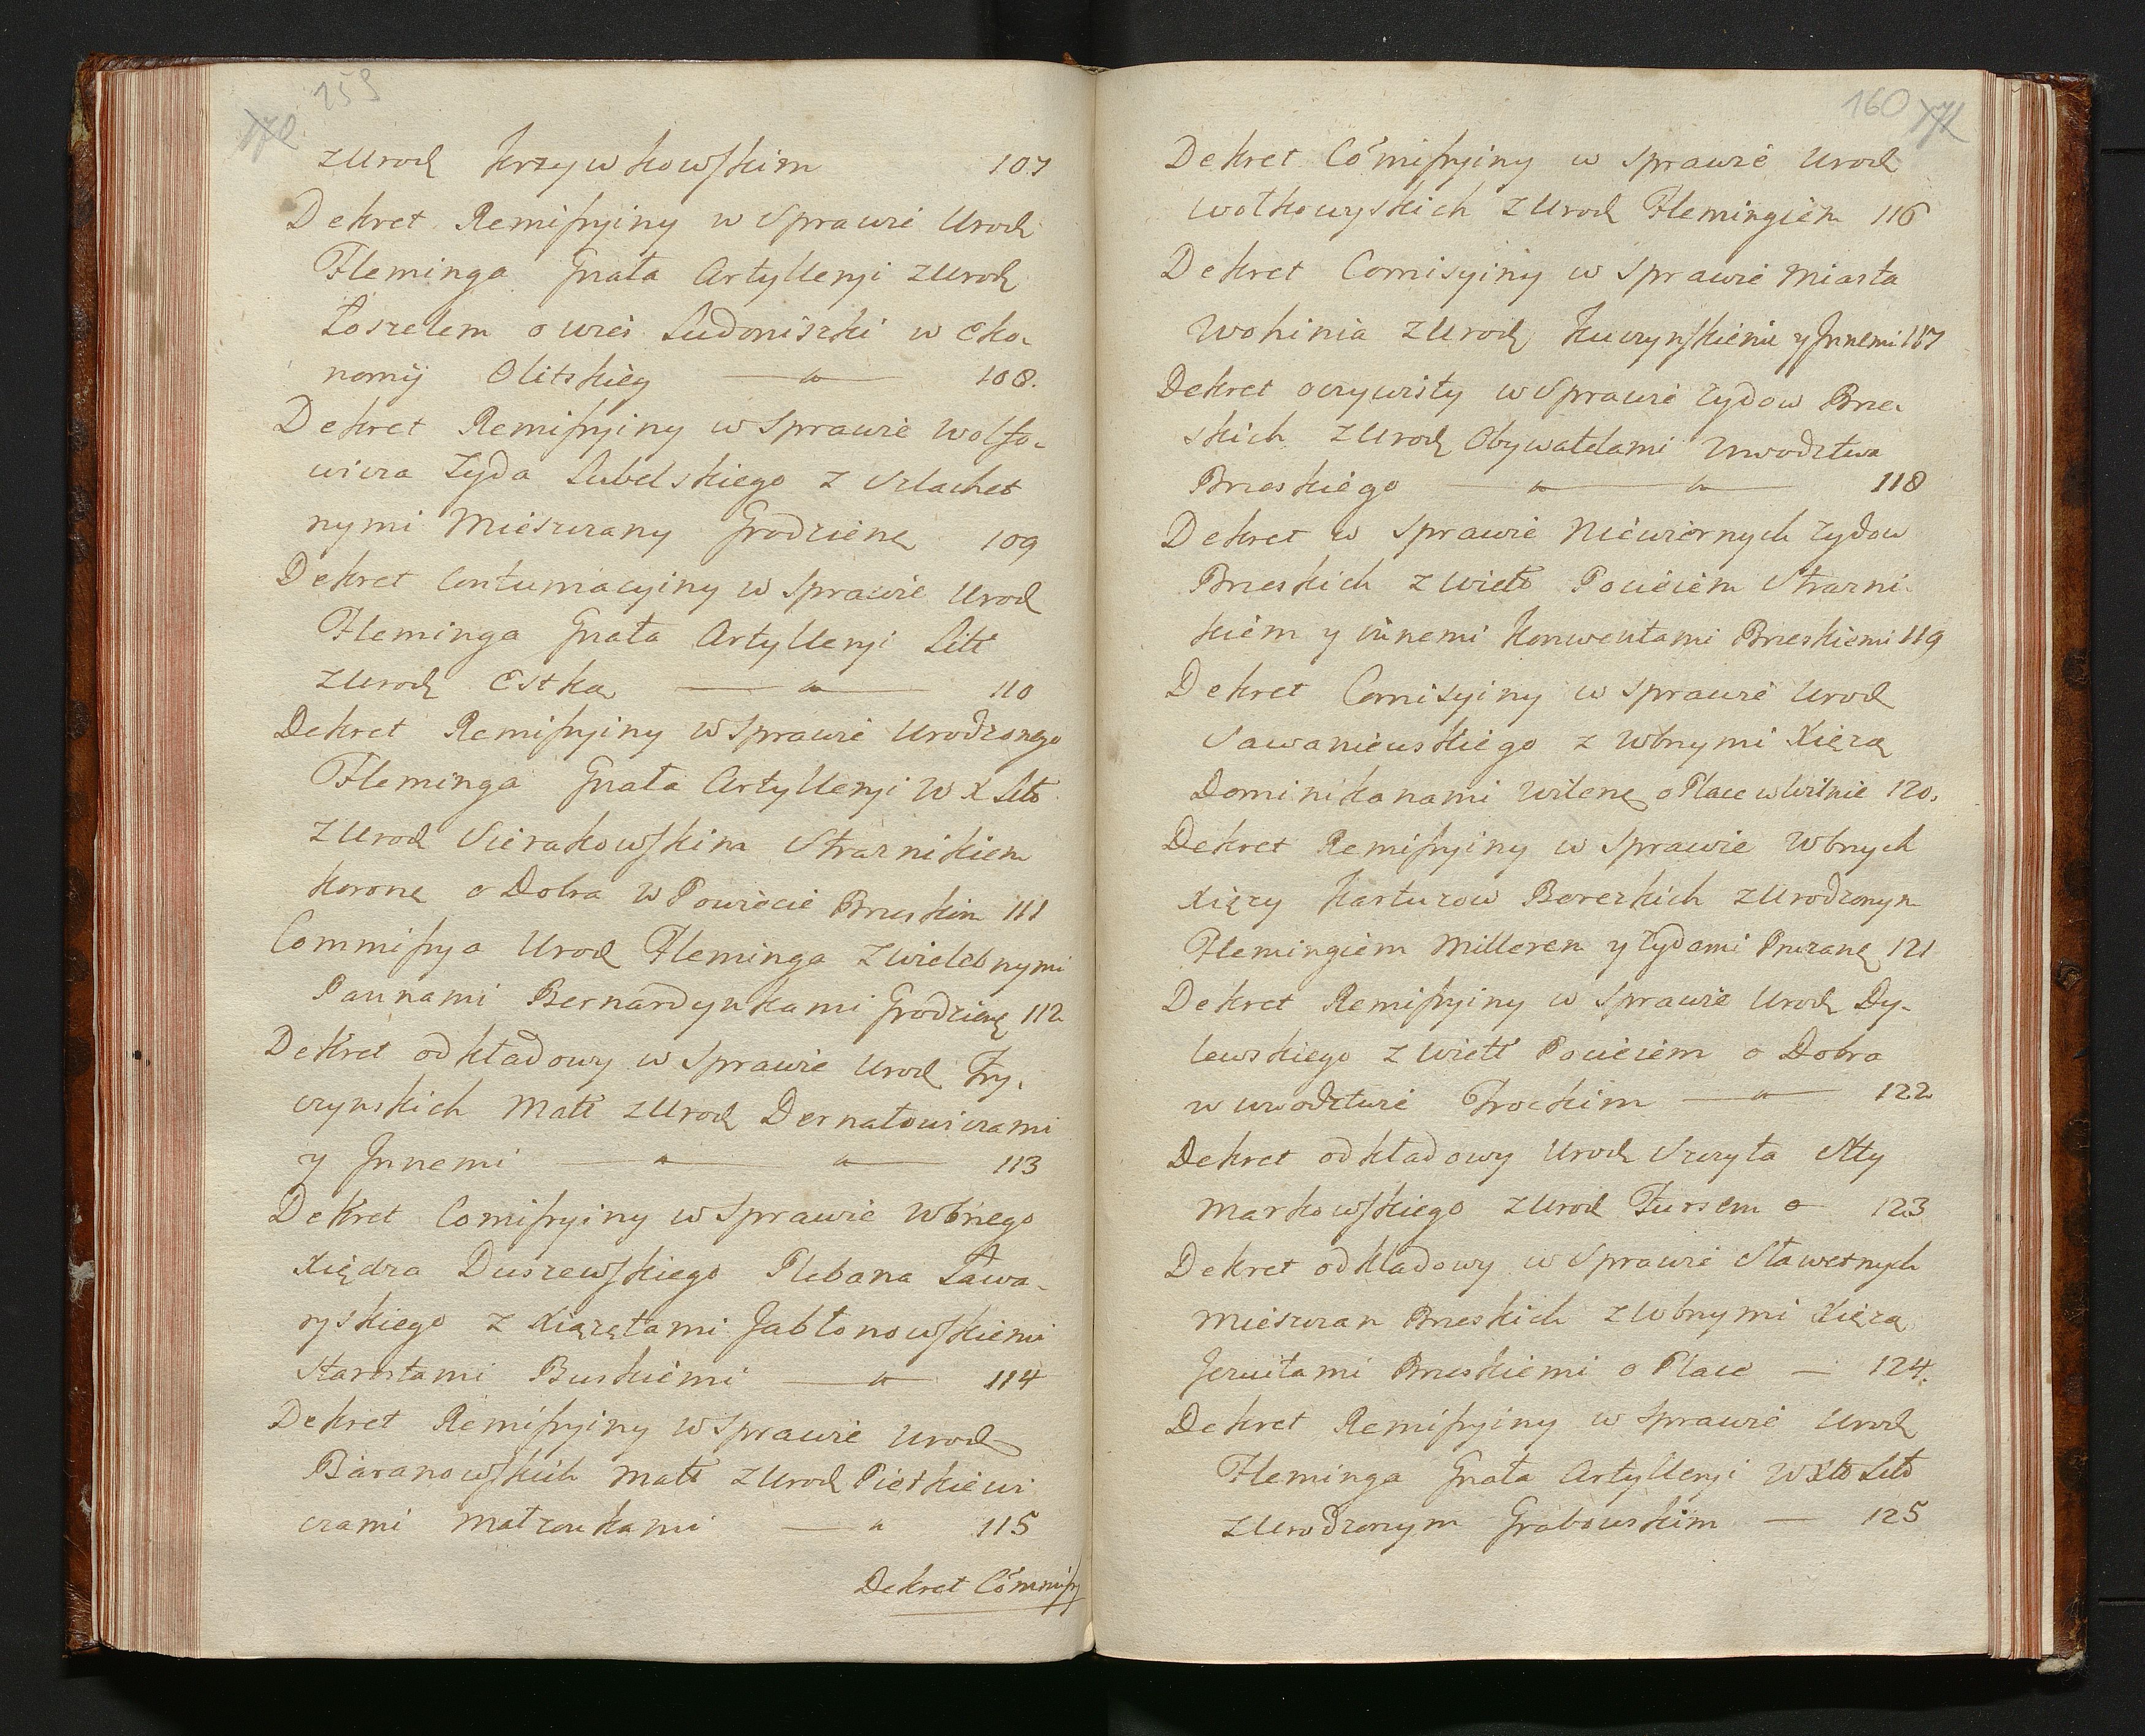 159
170
z Urod Krzywkowskim 107
Dekret Remissyiny w Sprawie Urod
Fleminga Gnała Artylleryi z Urod
Łoszelem o wieś Ludoniszki w Eko-
nomij Olitskiey 108.
Dekret Remissyiny w Sprawie Wolfo-
wicza Żyda Lubelskiego z Szlachet
nymi Mieszczany Grodzienę 109
Dekret Contumacyiny w Sprawie Urod
Fleminga Gnała Artylleryi Litt
z Urod Estką 110
Dekret Remissyiny w Sprawie Urodzonego
Fleminga Gnała Artylleryi W X Litto
z Urod Sierakowskim Strażnikiem
Koronę o Dobra w Powiecie Brzeskim 111
Commissya Urod Fleminga z Wielebnymi
Pannami Bernardynkami Grodzienę 112
Dekret odkładowy w Sprawie Urod Try-
czynskich Małł z Urod Dernałowiczami
y Jnnemi 113
Dekret Comissyiny w Sprawie Wbnego
Xiędza Duszewskiego Plebana Ława-
ryskiego z Xiążętami Jabłonowskiemi
Starostami Buskiemi 114
Dekret Remissyiny w Sprawie Urod
Baranowskich Małł z Urod Pietkiewi
czami Małżonkami 115
Dekret Commissy
160
171
Dekret Comissyiny w Sprawie Urod
Wołkowyskich z Urod Flemingiem 116
Dekret Comisyiny w Sprawie Miasta
Wohinia z Urod Kuczynskiemi y Jnnemi 117
Dekret oczywisty w Sprawie Zydow Brze-
skich z Urod Obywatelami Wwodztwa
Brzeskiego 118
Dekret w Sprawie Niewiernych Zydow
Brzeskich z Wielb Pocieiem Strażni-
kiem y innemi Konwentami Brzeskiemi 119
Dekret Comisyiny w Sprawie Urod
Sawaniewskiego z Wbnymi Xiężą
Dominikanami Wilenę o Place w Wilnie 120.
Dekret Remissyiny w Sprawie Wbnych
Xięży Kartuzow Berezkich z Urodzonym
Flemingiem Millerem y Żydami Pruzanę 121
Dekret Remissyiny w Sprawie Urod Dy-
lewskiego z Wiell Pocieiem o Dobra
w Wwodztwie Trockim 122
Dekret odkładowy Urod Szczyta Stty
Markowskiego z Urod Tursem o 123
Dekret odkładowy w Sprawie Sławetnych
Mieszczan Brzeskich z Wbnymi Xiężą
Jezuitami Brzeskiemi o Place 124.
Dekret Remissyiny w Sprawie Urod
Fleminga Gnała Artylleryi W Xtto Litto
z Urodzonym Grabowskim 125